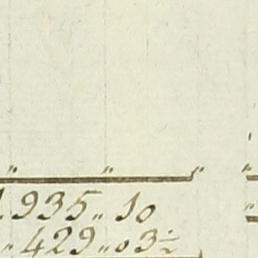 1.935 „ 10
„ 429 „ 03½